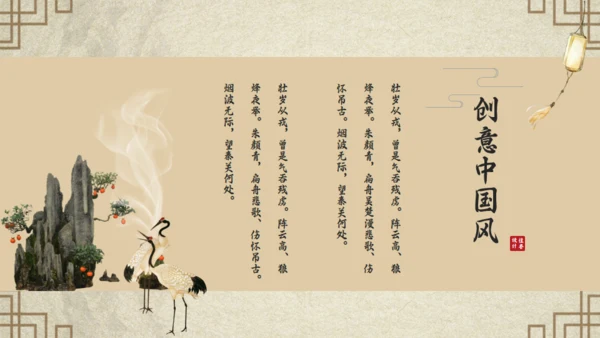 创意中国风
壮岁从戎，曾是气吞残虏。阵云高、狼
烽夜举。朱顏青，扁舟吴楚漫悲歌、伤
怀吊古。烟波无际，望秦关何处。
壮岁从戎，曾是气吞残虏。阵云高、狼
烽夜举。朱顏青，扁舟悲歌、伤怀吊古。
烟波无际，望秦关何处。